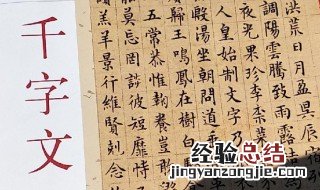 千字文
洪荒日月盈昃辰宿
調陽雲騰致雨露
夜光果珍李柰菜
人皇始制文字乃
殷湯坐朝問道
歸王鳴鳳在樹白
五常恭惟鞠養豈敢
莫忘罔談彼短靡恃
羔羊景行維賢剋念
经验总结